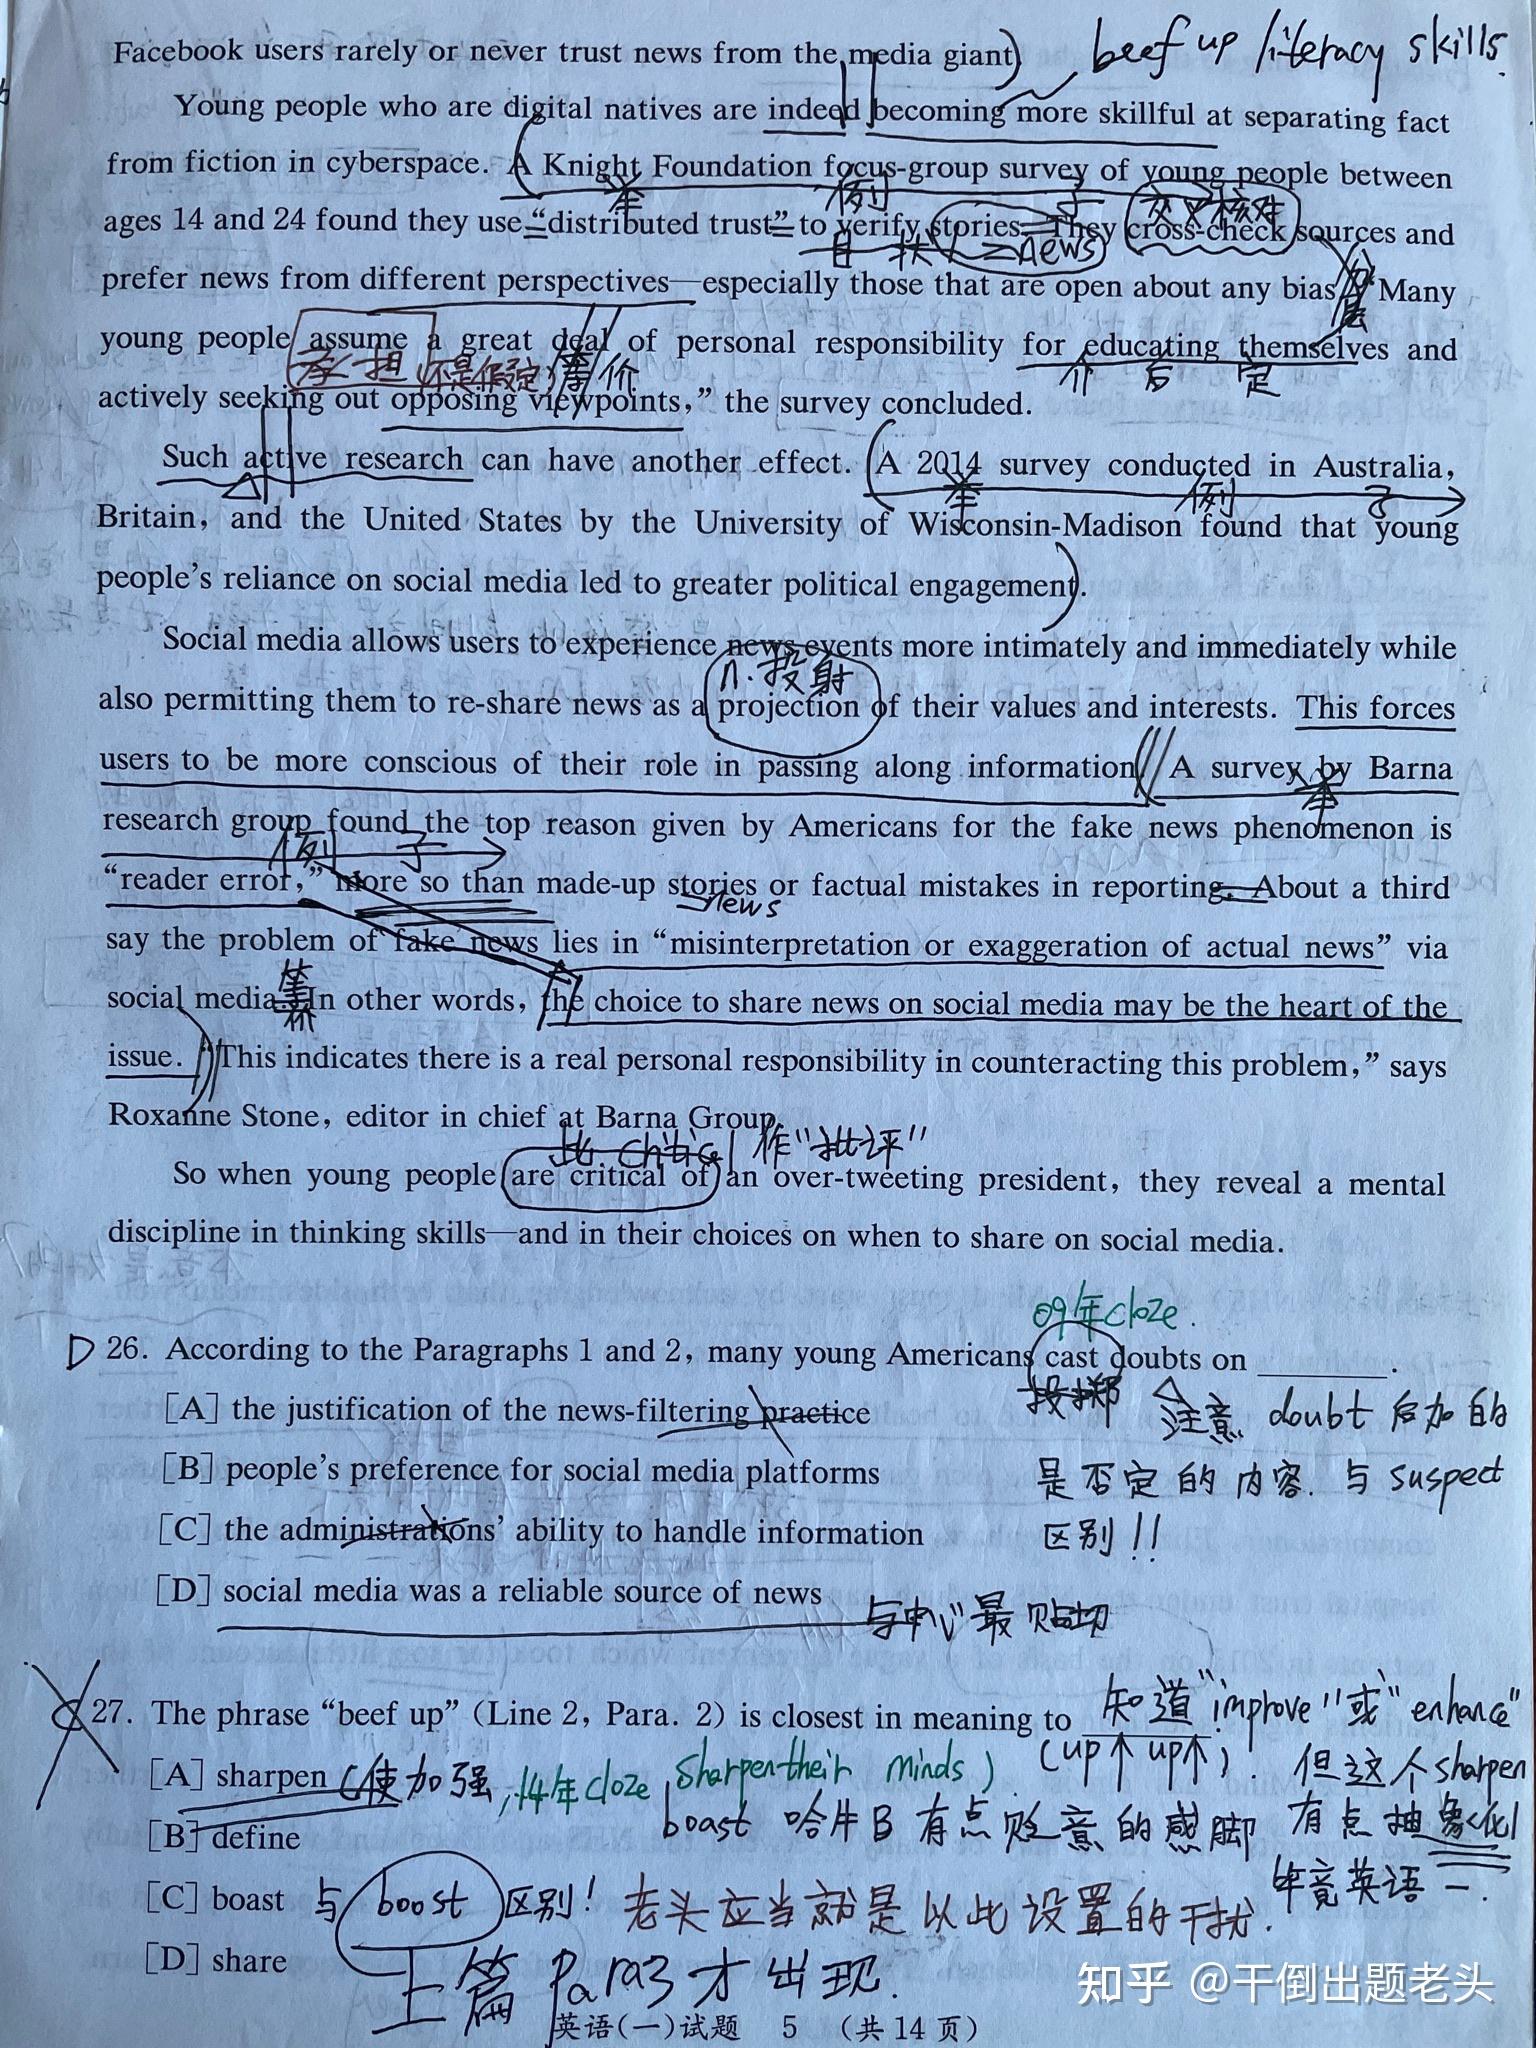 Facebook users rarely or never trust news from the media giant)
beef up literacy skills.
Young people who are digital natives are indeed becoming more skillful at separating fact
from fiction in cyberspace. A Knight Foundation focus-group survey of young people between
例 子 交叉核对
ages 14 and 24 found they use “distributed trust” to verify stories. They cross-check sources and
=news
prefer news from different perspectives—especially those that are open about any bias. “Many
young people assume a great deal of personal responsibility for educating themselves and
承担 (不是假定) 等价 介 后 定
actively seeking out opposing viewpoints,” the survey concluded.
Such active research can have another effect. (A 2014 survey conducted in Australia,
例 子
Britain, and the United States by the University of Wisconsin-Madison found that young
people’s reliance on social media led to greater political engagement).
Social media allows users to experience news events more intimately and immediately while
n. 投射
also permitting them to re-share news as a projection of their values and interests. This forces
users to be more conscious of their role in passing along information. A survey by Barna
research group found the top reason given by Americans for the fake news phenomenon is
例 子
“reader error,” more so than made-up stories or factual mistakes in reporting. About a third
news
say the problem of fake news lies in “misinterpretation or exaggeration of actual news” via
social media. In other words, the choice to share news on social media may be the heart of the
issue. “This indicates there is a real personal responsibility in counteracting this problem,” says
Roxanne Stone, editor in chief at Barna Group.
此 critical 作“批评”
So when young people are critical of an over-tweeting president, they reveal a mental
discipline in thinking skills—and in their choices on when to share on social media.
09年cloze.
D 26. According to the Paragraphs 1 and 2, many young Americans cast doubts on ________.
投掷 注意 doubt 后加的
[A] the justification of the news-filtering practice
[B] people’s preference for social media platforms
是否定的内容. 与 suspect
[C] the administrations’ ability to handle information
区别!!
[D] social media was a reliable source of news
与中心最贴切
27. The phrase “beef up” (Line 2, Para. 2) is closest in meaning to ________.
知道“improve”或“enhance”
(up↑ up↑)
[A] sharpen (使加强, 14年cloze sharpen their minds)
但这个sharpen
[B] define
boast 哈牛B 有点贬意的感脚
有点抽象化
毕竟英语一.
[C] boast 与 boost 区别!
老头应当就是以此设置的干扰.
[D] share
上篇 Para3 才出现.
知乎 @干倒出题老头
英语(一)试题 5 (共14页)